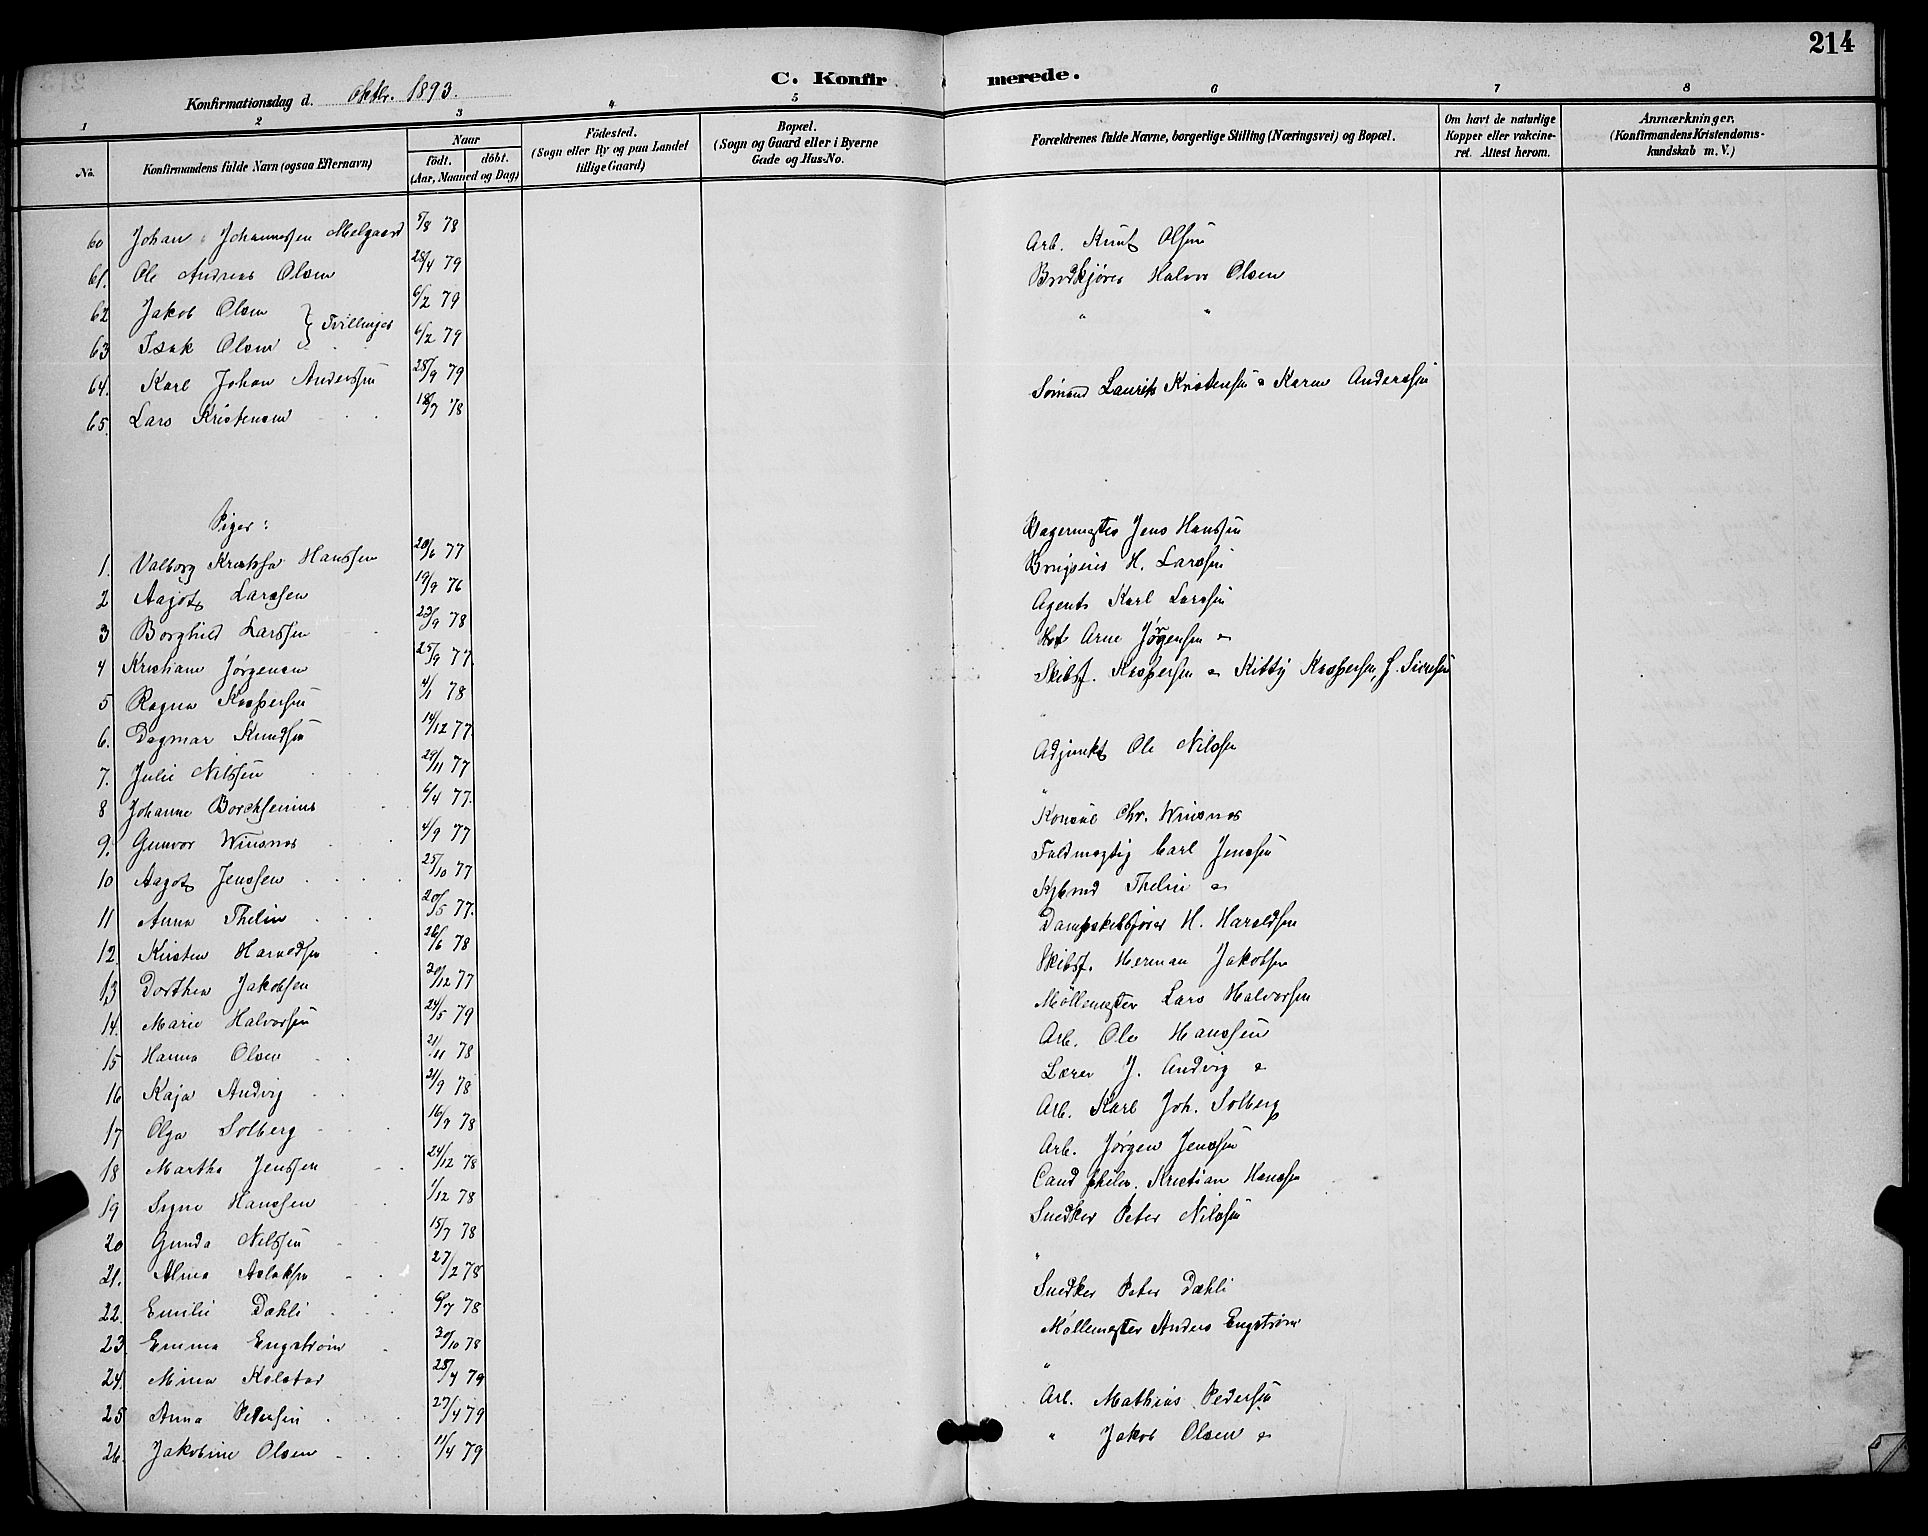 214
C. Konfirmerede.
Konfirmationsdag d. Oktbr. 1893.
1 2 3 4 5 6 7 8
No.
Konfirmandens fulde Navn (ogsaa Efternavn)
Naar
födt. döbt.
(Aar, Maaned og Dag)
Födested.
(Sogn eller By og paa Landet
tillige Gaard)
Bopæl.
(Sogn og Gaard eller i Byerne
Gade og Hus-No.
Forældrenes fulde Navne, borgerlige Stilling (Næringsvei) og Bopæl.
Om havt de naturlige
Kopper eller vakcine-
ret. Attest herom.
Anmærkninger.
(Konfirmandens Kristendoms-
kundskab m. V.)
60 Johan Johannessen Melgaard 5/8 78
61. Ole Andreas Olsen 28/4 79 Arb. Knut Olsen
62 Jakob Olsen } Tvillinger 6/2 79 Brødkjører Halvor Olsen
63 Isak Olsen 6/2 79 " "
64. Karl Johan Anderssen 28/9 79
65. Lars Kristensen 18/7 78 Sømand Laurits Kristensen & Karen Anderssen
Piger:
1. Valborg Hanssen 20/6 77 Jens Hanssen
2 Aagot Larssen 19/9 76 H. Larssen
3 Borghild Larssen 22/9 78 Agent Karl Larssen
4 Kristiane Jørgensen 25/9 77. Arne Jørgensen &
5 Ragna Kaspersen 4/1 78 Skibsf. Kaspersen & Kitty Kaspersen, f.
6. Dagmar Knudsen 14/12 77. "
7. Julie Nilssen 29/11 77 Adjunkt Ole Nilssen
8 Johanne Borchsenius 6/4 77. "
9. Gunvor Winsnes 4/9 77 Konsul Chr. Winsnes
10 Aagot Jenssen 25/10 77 Fuldmægtig Carl Jenssen
11 Anna Thelin 20/5 77. Thelin &
12. Kirsten Haroldsen 26/6 78 Dampskibsfører H. Haroldsen
13 Dorthea Jakobsen 20/12 77 Skibsf. Herman Jakobsen
14. Marie Halvorsen 24/5 79 Møllemester Lars Halvorsen
15 Hanna Olsen 21/11 78 Arb. Ole Hanssen
16 Kaja Andvig 21/9 78 Lærer J. Andvig &
17 Olga Solberg 16/7 78 Arb. Karl Joh. Solberg
18 Martha Jenssen 24/12 78 Arb. Jørgen Jenssen
19 Signe Hanssen 1/12 78 Cand philos. Kristian Hanssen
20 Gunda Nilssen 15/7 78 Snedker Peter Nilssen
21. Alma Aslaksen 27/2 78 "
22. Emilie Dæhli 6/7 78 Snedker Peter Dæhli
23. Emma Engstrøm 30/10 78 Møllemester Anders Engstrøm
24. Mina Kolstad 28/4 79 "
25 Anna Pedersen 27/4 79 Arb. Mathias Pedersen
26. Jakobine Olsen 11/4 79 " Jakob Olsen &